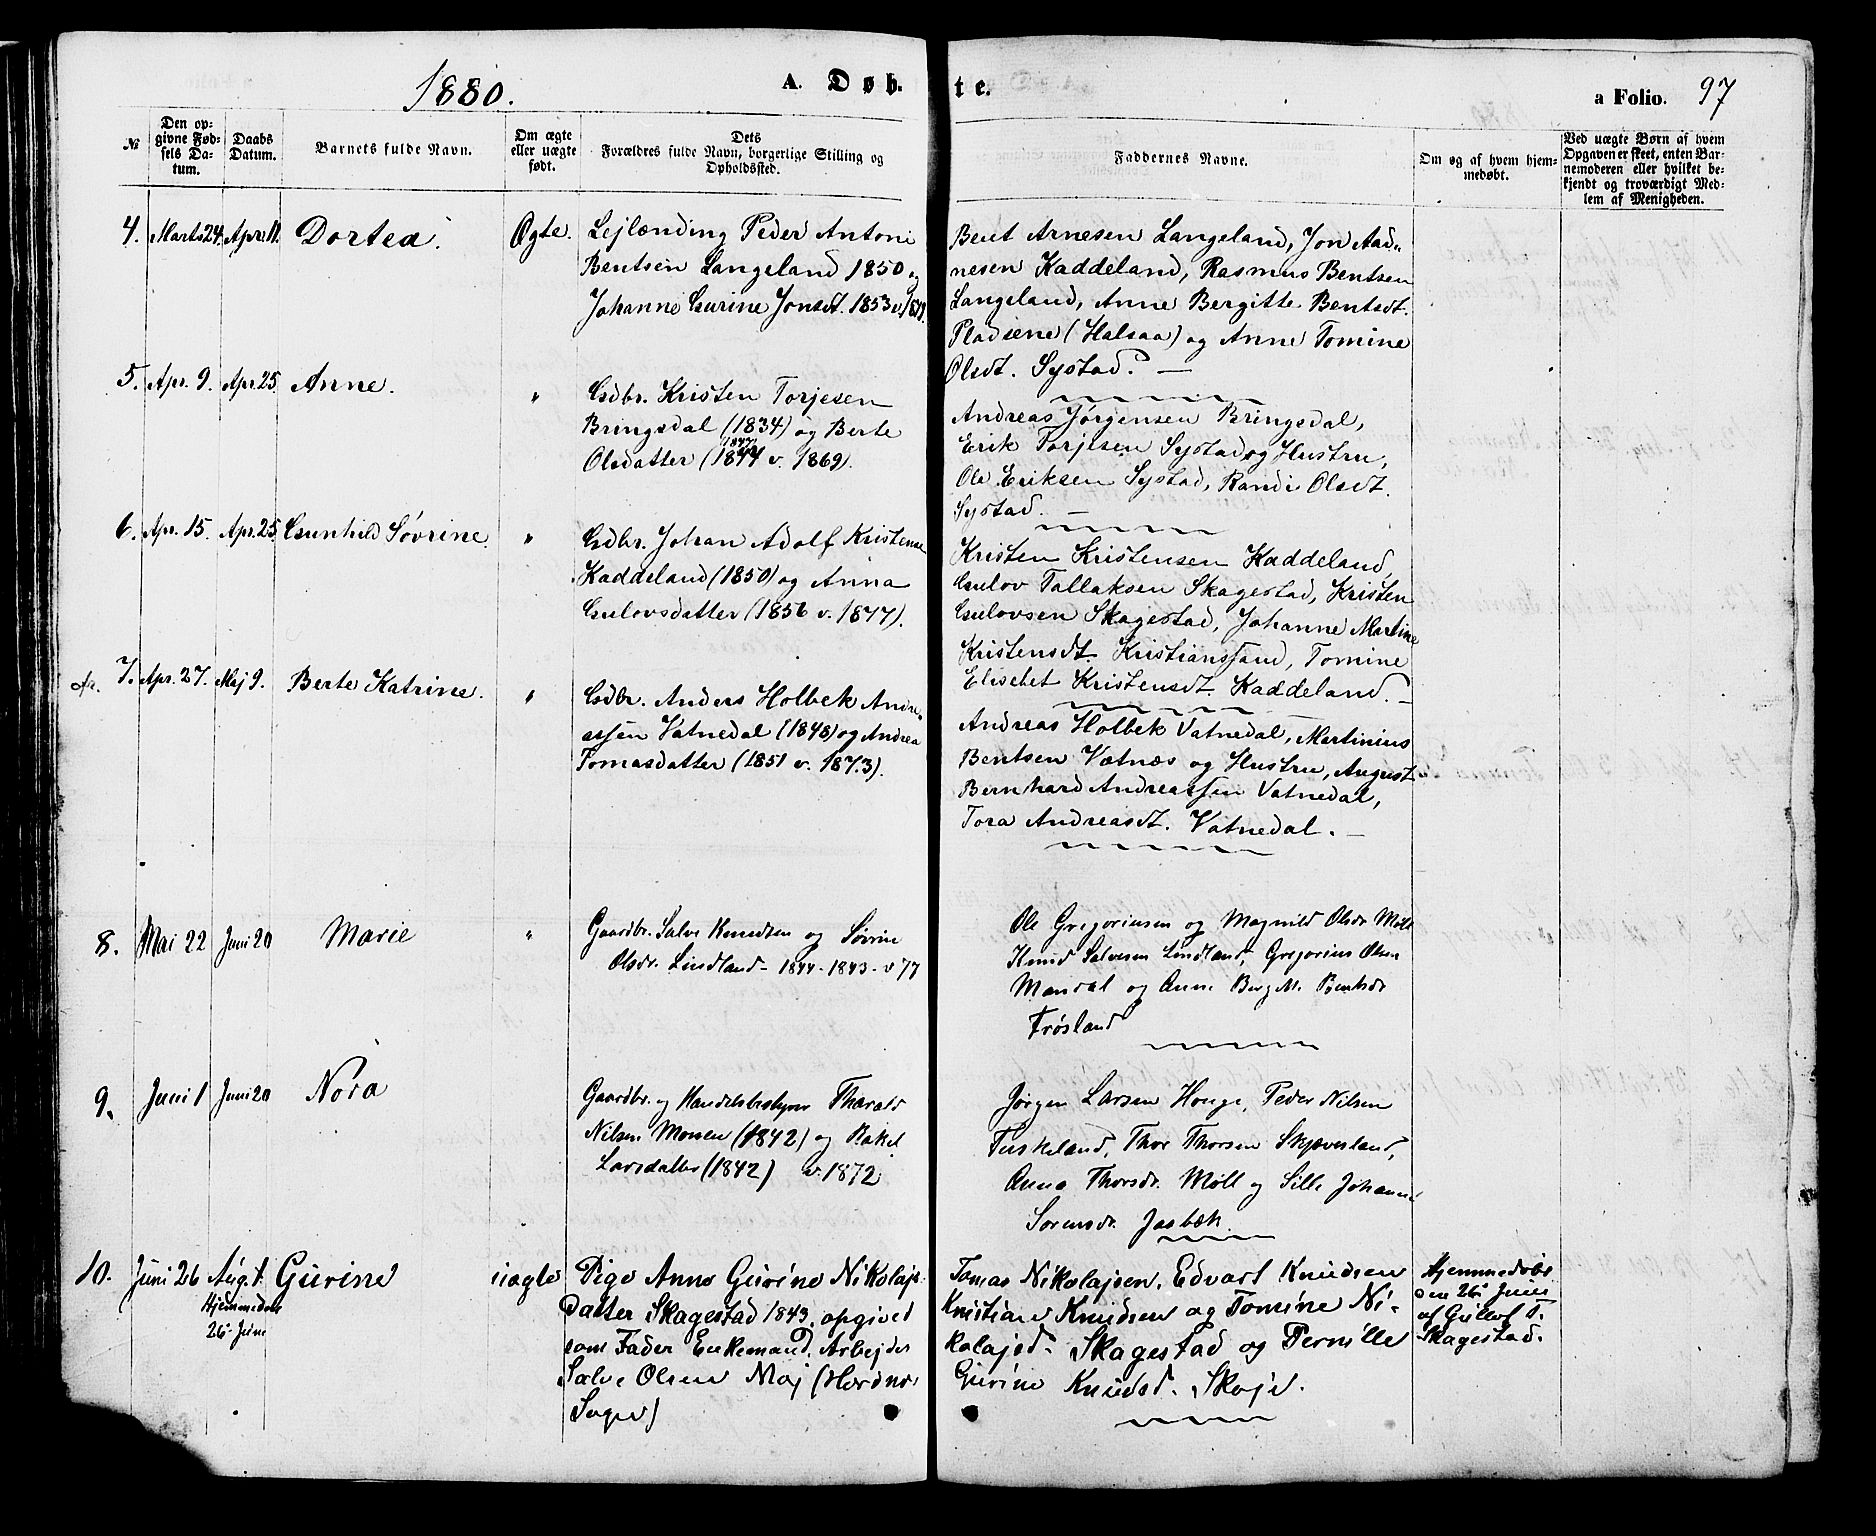 1880.
A. Døbte.
a Folio. 97
№
Den opgivne Fødsels Datum.
Daabs Datum.
Barnets fulde Navn.
Om ægte eller uægte født.
Dets Forældres fulde Navn, borgerlige Stilling og Opholdssted.
Faddernes Navne.
Om og af hvem hjemmedøbt.
Ved uægte Børn af hvem Opgaven er skeet, enten Barnemoderen eller hvilket bekjendt og troværdigt Medlem af Menigheden.
4. Marts 24. Apr. 11. Dortea. Ægte.
Lejlænding Peder Antoni
Bentsen Langeland 1850 og
Johanne Gurine Jonsdt. 1853 v.
Bent Arnesen Langeland, Jon Aad-
nesen Kaddeland, Rasmus Bentsen
Langeland, Anne Bergitte Bentsdt.
Pladsene (Halsaa) og Anne Tomine
Olsdt. Systad. —
5. Apr. 9. Apr. 25. Anne. "
Gdbr. Kristen Torjesen
Bringsdal (1834) og Berte
1847
Olsdatter (1844 v. 1869).
Andreas Jørgensen Bringsdal,
Erik Torjesen Systad og Hustru,
Ole Eriksen Systad, Randi Olsdt.
Systad. —
6. Apr. 15. Apr. 25. Gunhild Søvrine. "
Gdbr. Johan Adolf Kristensen
Kaddeland (1850) og Anna
Gulovsdatter (1856 v. 1877).
Kristen Kristensen Kaddeland,
Gulov Tallaksen Skagestad, Kristen
Gulovsen Skagestad, Johanne Martine
Kristensdt. Kristianssand, Tomine
Elisebet Kristensdt. Kaddeland. —
7. Apr. 27. Maj 9. Berte Katrine. "
Gdbr. Anders Holbek Andre-
assen Vatnedal (1848) og Andrea
Tomasdatter (1851 v. 1873).
Andreas Holbek Vatnedal, Martinius
Bentsen Vatnæs og Hustru, August
Bernhard Andreassen Vatnedal,
Tora Andreasdt. Vatnedal. —
8. Mai 22 Juni 20 Marie "
Gaardbr. Salve Knudsen og Sørine
Olsdr. Lindland - 1844 - 1843 - v 77
Ole Gregoriusen og Magnild Olsdr Møll
Knud Salvesen Lindland, Gregorius Olsen
Mandal og Anne Berg M. Bentsdr
Frøsland
9. Juni 1 Juni 20 Nora
Gaardbr. og Handelsbestyrer Tharald
Nilsen Monen (1842) og Rakel
Larsdatter (1842) v. 1872
Jørgen Larsen Houge, Peder Nilsen
Tuskeland, Thor Thorsen Skjævesland,
Anna Thorsdr. Møll og Sille Johanne
Sørensdr. Jasbæk.
10. Juni 26 Aug. 1. Gurine uægte
Hjemmedøbt
26. Juni
Pige Anne Gurine Nikolajs-
datter Skagestad 1843, opgivet
som Fader Enkemand, Arbejder
Salve Olsen Maj (
Sogn)
Tomas Nikolajsen, Edvart Knudsen
Kristiane Knudsen og Tomine Ni-
kolajsd. Skagestad og Pernille
Gurine Knudsd. Skoje.
Hjemmedøbt
den 26 Juni
af Gullof T.
Skagestad.